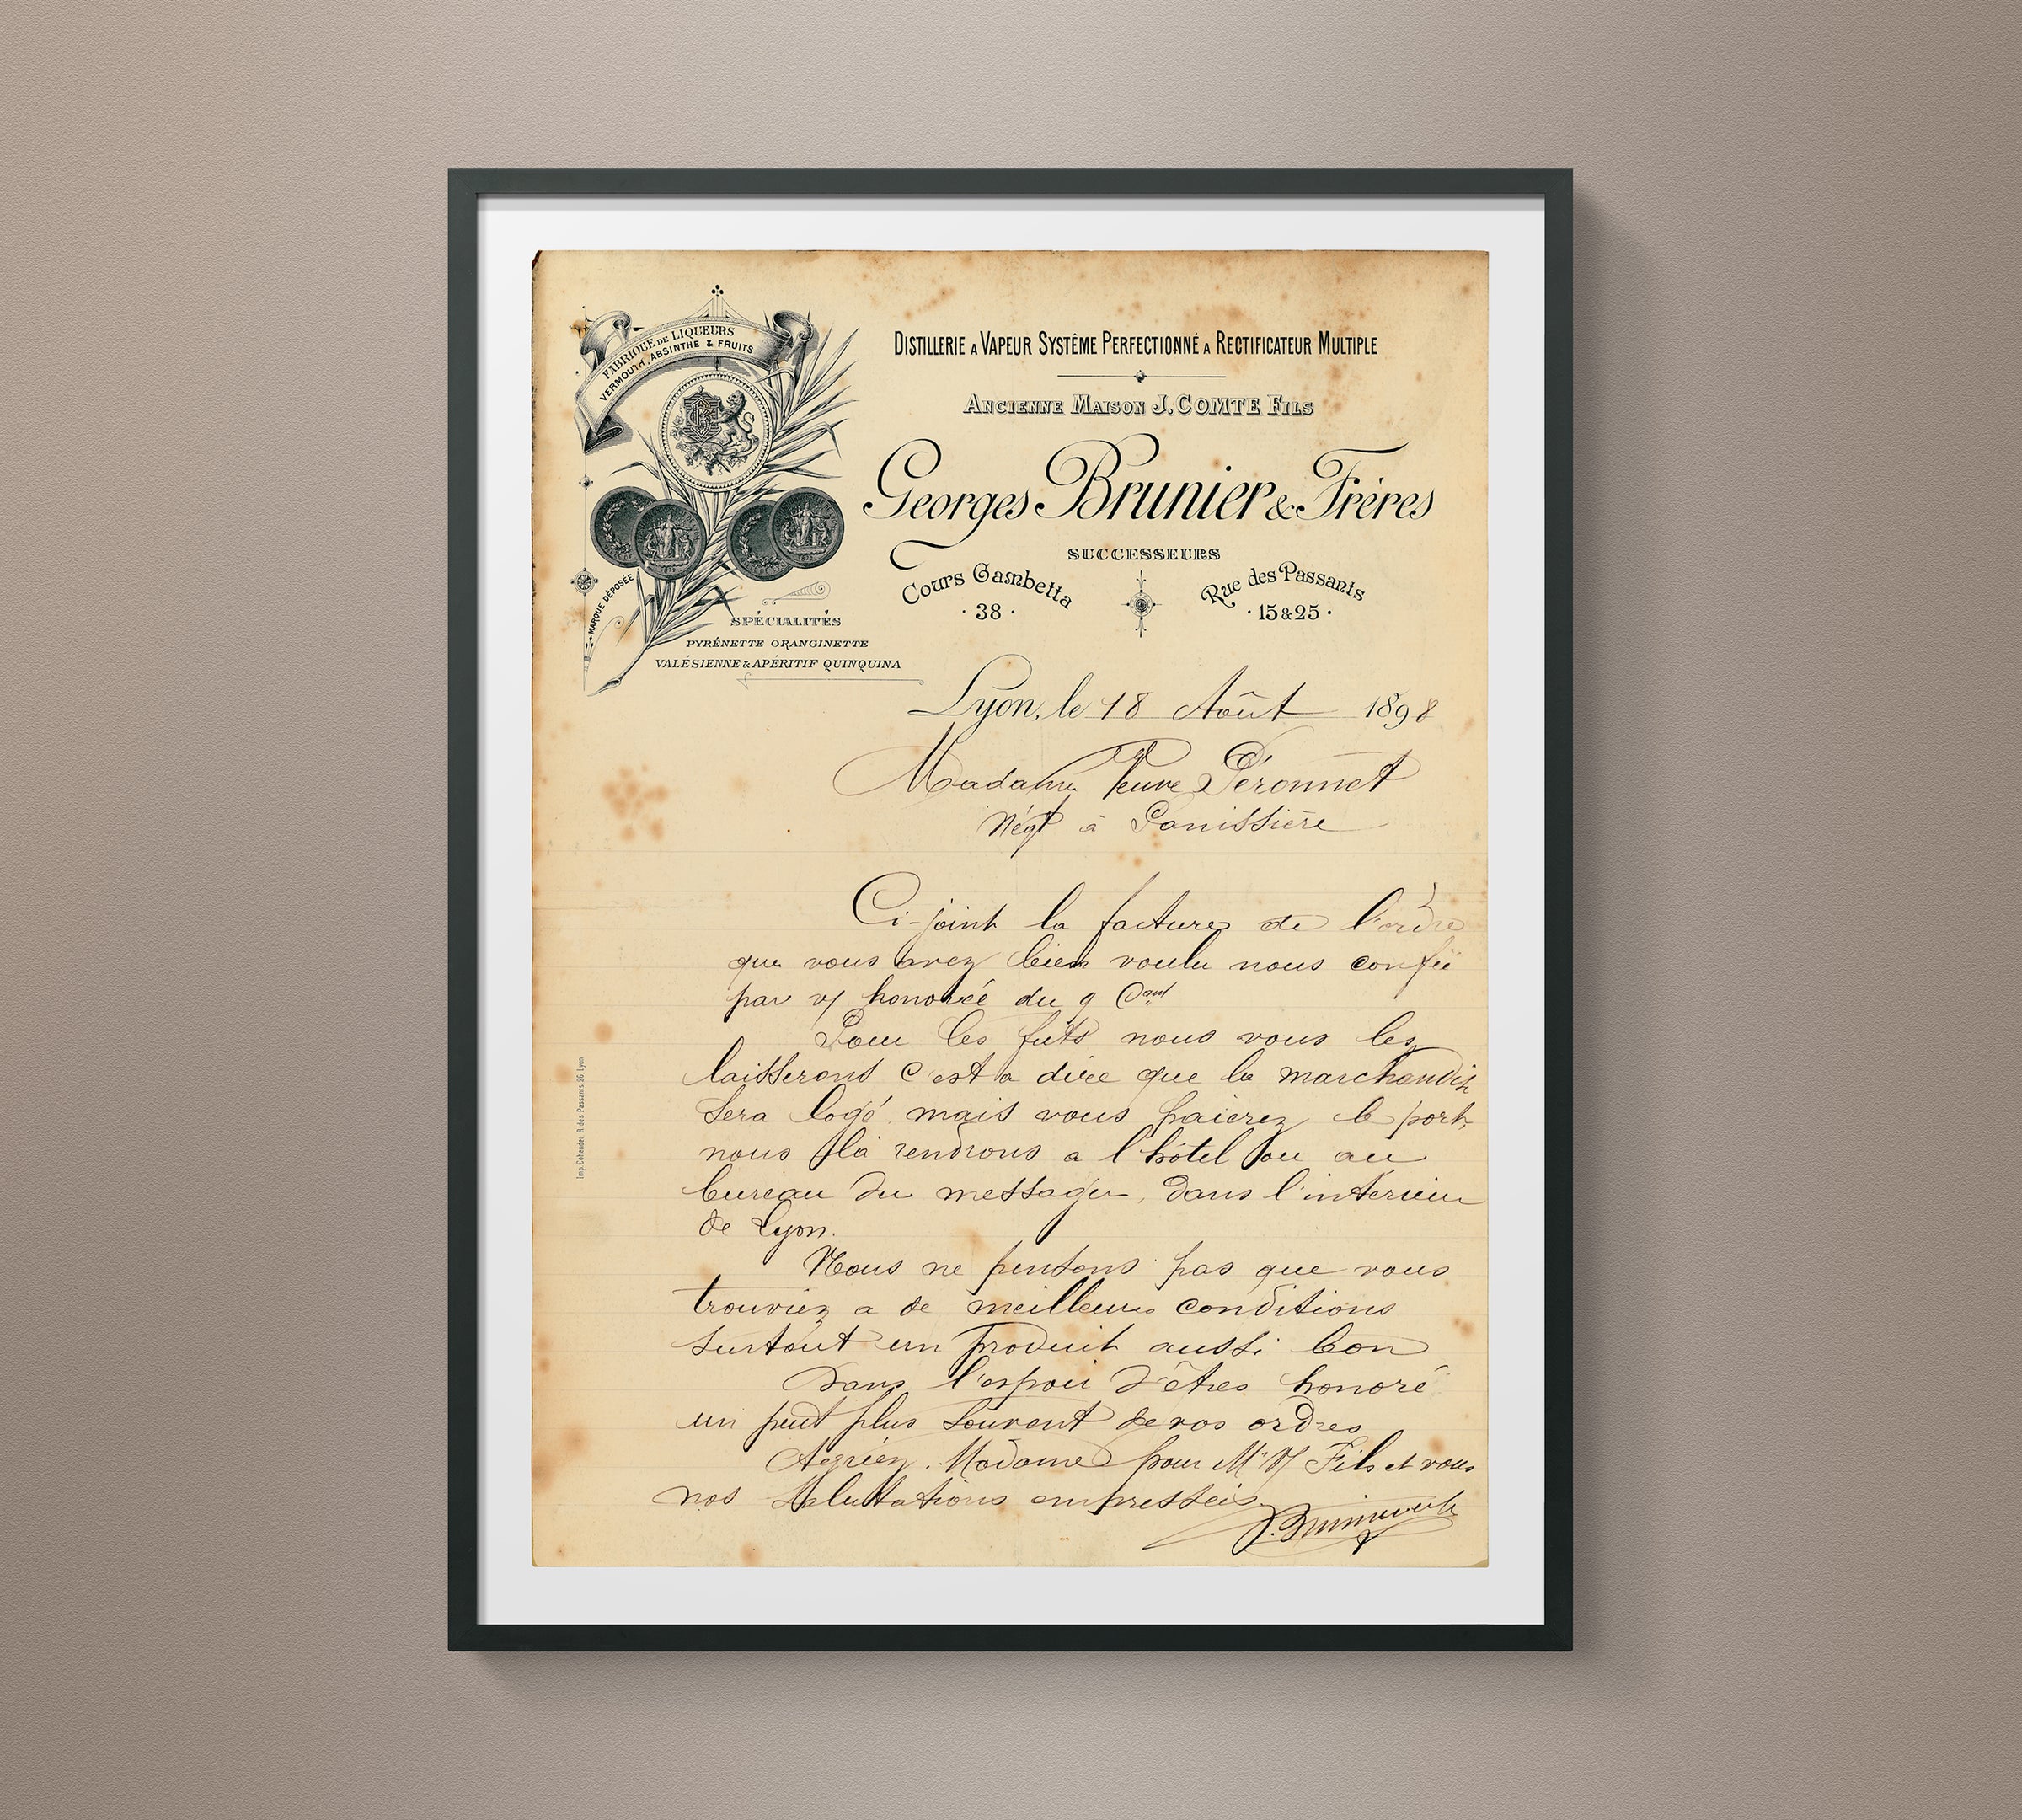 FABRIQUE DE LIQUEURS
VERMOUTH, ABSINTHE & FRUITS
MARQUE DÉPOSÉE
SPÉCIALITÉS
PYRÉNETTE ORANGINETTE
VALÉSIENNE & APÉRITIF QUINQUINA
DISTILLERIE A VAPEUR SYSTÊME PERFECTIONNÉ A RECTIFICATEUR MULTIPLE
ANCIENNE MAISON J. COMTE FILS
Georges Brunier & Frères
SUCCESSEURS
Cours Gambetta
· 38 ·
Rue des Passants
· 15 & 25 ·
Lyon, le 18 Août 1898
Madame Veuve Péronnet
Négt à Panissière
Ci-joint la facture de l'ordre
que vous avez bien voulu nous confié
par v/ honorée du 9 Cant
Pour les futs nous vous les
laisserons c'est a dire que la marchandise
sera logé mais vous paierez le port,
nous la rendrons a l'hôtel ou au
bureau du messager, dans l'interieur
de Lyon.
Nous ne pensons pas que vous
trouviez a de meilleures conditions
surtout un produit aussi bon
Dans l'espoir d'êtres honoré
un peut plus souvent de vos ordres
Agréez. Madame pour Mr V/ Fils et vous
nos salutations empressées
Imp. Cohendet R. des Passants, 25 Lyon